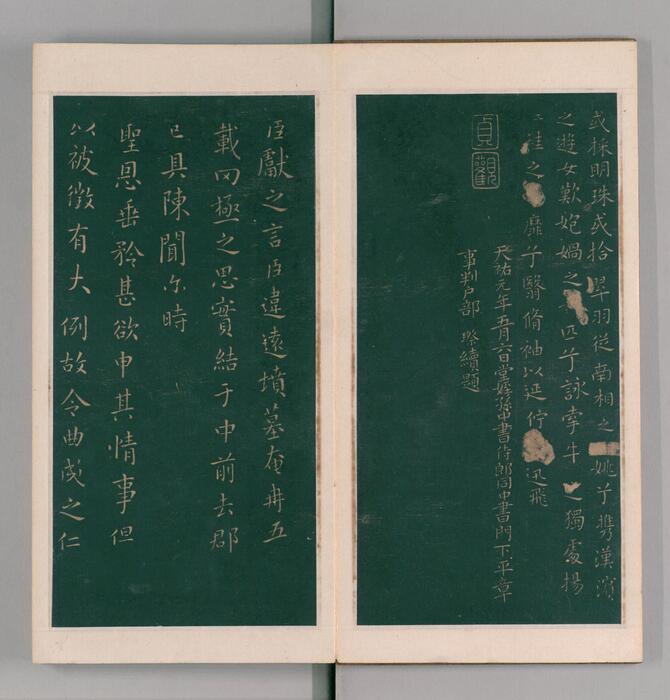 或採明珠或拾翠羽從南相之姚兮携漢濱
之遊女歎媧之匹兮詠牽牛之獨處揚
袿之靡兮翳脩袖以延佇迅飛
貞觀
天祐元年五月六日堂姪孫中書侍郎同中書門下平章
事判户部 璨續題
臣獻之言臣違遠墳墓奄冉五
載罔極之思實結于中前去郡
已具陳聞尒時
聖恩垂矜甚欲申其情事但
以被徵有大例故令曲成之仁